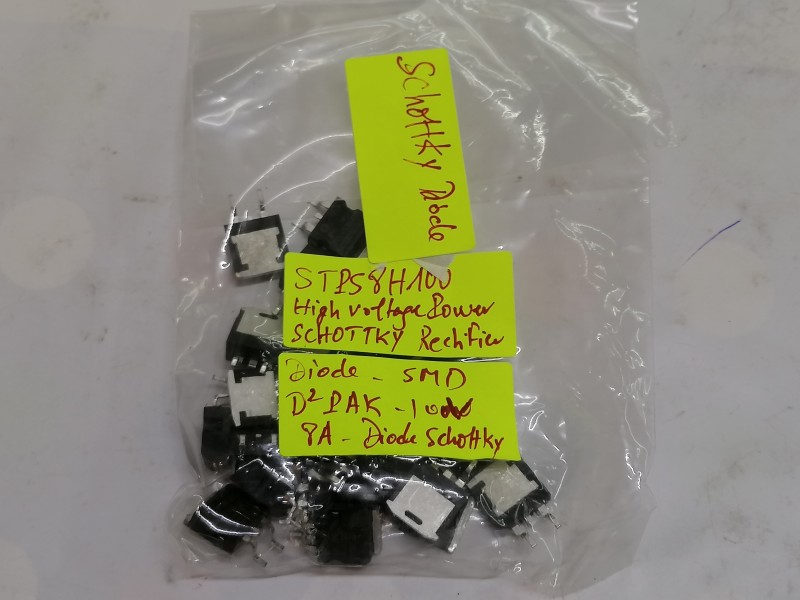 Schottky Diode
STPS8H100
High voltage Power
SCHOTTKY Rectifier
Diode - SMD
D²PAK - 100V
8A - Diode Schottky